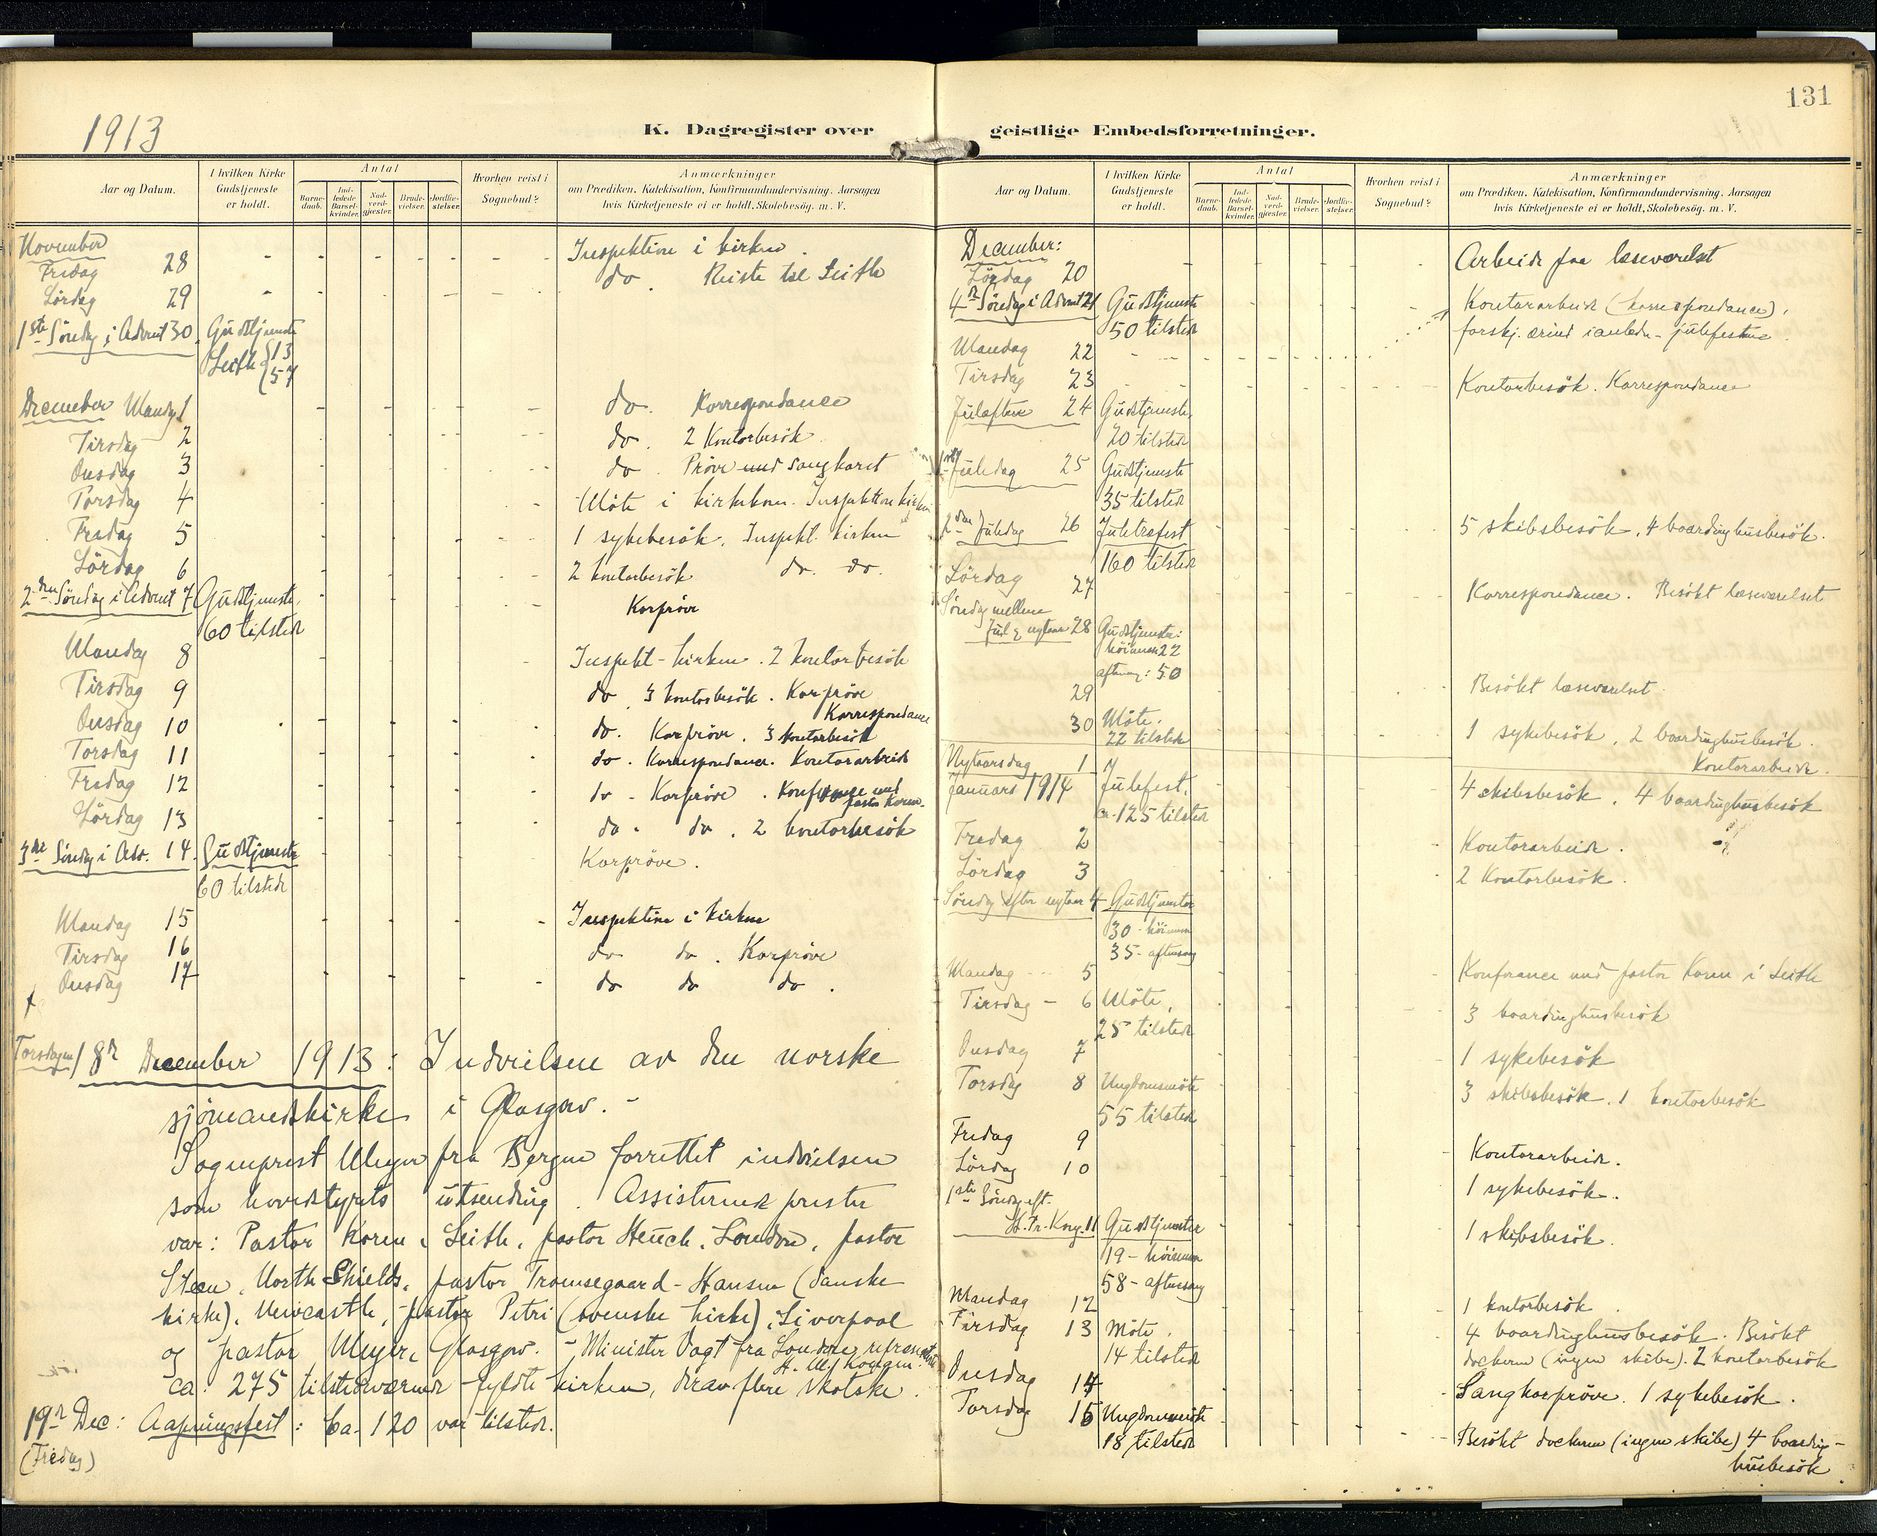 131
1913
K. Dagregister over geistlige Embedsforretninger.
Aar og Datum.
I hvilken Kirke Gudstjeneste er holdt.
Antal
Barne-daab.
Ind-ledede Barsel-kvinder.
Nad-verd-gjester.
Brude-vielser.
Jordfæ-stelser.
Hvorhen reist i Sognebud?
Anmærkninger
om Prædiken, Katekisation, Konfirmandundervisning, Aarsagen
hvis Kirketjeneste ei er holdt, Skolebesøg, m. V.
November
Fredag 28 Inspektion i kirken
Lördag 29 do Reiste til Leith
1ste Söndag i Advent 30 Gudstjeneste
Leith 13
57
December Mandag 1 do. Korrespondance
Tirsdag 2 do. 2 Kontorbesök
Onsdag 3 do. Pröve med sangkoret
Torsdag 4 Möte i kirkekom. Inspektion kirken
Fredag 5 1 sykebesök. Inspekt. kirken
Lördag 6 2 kontorbesök do. do.
2den Söndag i Advent 7 Gudstjeneste. Korpröve
60 tilstede
Mandag 8 Inspekt- kirken. 2 kontorbesök
Tirsdag 9 do. 3 kontorbesök. Korpröve
Korrespondance
Onsdag 10 do. Korpröve. 3 kontorbesök
Torsdag 11 do. Korrespondance. Kontorarbeide
Fredag 12 do - Korpröve. Konferance med
pastor Koren.
Lördag 13 do. do. 2 kontorbesök
3die Söndag i Adv. 14 Gudstjeneste Korpröve.
60 tilstede
Mandag 15 Inspektion i kirken
Tirsdag 16 do do. Korpröve
Onsdag 17 do do do.
Torsdagen 18de December 1913: Indvielsen av den norske
sjömandskirke i Glasgow. -
Sogneprest Meyer fra Bergen forrettet indvielsen
som hovedstyrets utsending. Assisterende prester
var: Pastor Koren, Leith, pastor Heuch, London, pastor
Steen, North Shields, pastor Tromsegaard-Hansen (danske
kirke), Newcastle, pastor Petri (svenske kirke), Liverpool
og pastor Meyer, Glasgow. - Minister Vogt fra London repræsenterte
H. M. kongen.
ca. 275 tilstedeværende fyldte kirken, derav flere skotske.
19de Dec: Aapningsfest: Ca. 120 var tilstede.
(Fredag)
Aar og Datum.
I hvilken Kirke Gudstjeneste er holdt.
Antal
Barne-daab.
Ind-ledede Barsel-kvinder.
Nad-verd-gjester.
Brude-vielser.
Jordfæ-stelser.
Hvorhen reist i Sognebud?
Anmærkninger
om Prædiken, Katekisation, Konfirmandundervisning, Aarsagen
hvis Kirketjeneste ei er holdt, Skolebesøg, m. V.
December:
Lördag 20 Arbeide paa læseværelset
4de Söndag i Advent 21 Gudstjeneste
50 tilstede
Mandag 22 Kontorarbeide (korrespondance),
forskj. ærind i anledn- julefestene
Tirsdag 23 Kontorbesök. Korrespondance
Juleaften 24 Gudstjeneste.
20 tilstede
1ste Juledag 25 Gudstjeneste
35 tilstede
2den Juledag 26 Juletræfest
160 tilstede
5 skibsbesök. 4 boardinghusbesök.
Lördag 27 Korrespondance. Besökt læseværelset
Söndag mellem
Jul & nytaar 28 Gudstjeneste:
höimesse 22
aftensang: 50
29 Besökt læseværelset.
30 Möte.
22 tilstede
1 sykebesök. 2 boardinghusbesök.
Kontorarbeide.
Nytaarsdag 1
Januar 1914 Julefest.
ca. 125 tilstede
4 skibsbesök. 4 boardinghusbesök
Fredag 2 Kontorarbeide.
Lördag 3 2 Kontorbesök.
Söndag efter nytaar 4 Gudstjenester
30 - höimesse
35 - aftensang
Mandag 5 Konferance med pastor Koren i Leith
Tirsdag - 6 Möte. 3 boardinghusbesök
25 tilstede
Onsdag 7 1 sykebesök
Torsdag 8 Ungdomsmöte 3 skibsbesök. 1 kontorbesök
55 tilstede
Fredag 9 Kontorarbeide.
Lördag 10 1 sykebesök.
1ste Söndag eft.
H. Tr. Kong. 11 Gudstjenester 1 skibsbesök.
19 - höimesse
58 - aftensang
Mandag 12 1 kontorbesök.
Tirsdag 13 Möte. 4 boardinghusbesök. Besökt
14 tilstede dockerne (ingen skibe). 2 kontorbesök
Onsdag 14 Sangkorpröve. 1 sykebesök.
Torsdag 15 Ungdomsmöte
18 tilstede
Besökt dockerne (ingen skibe) 4 boarding-
husbesök